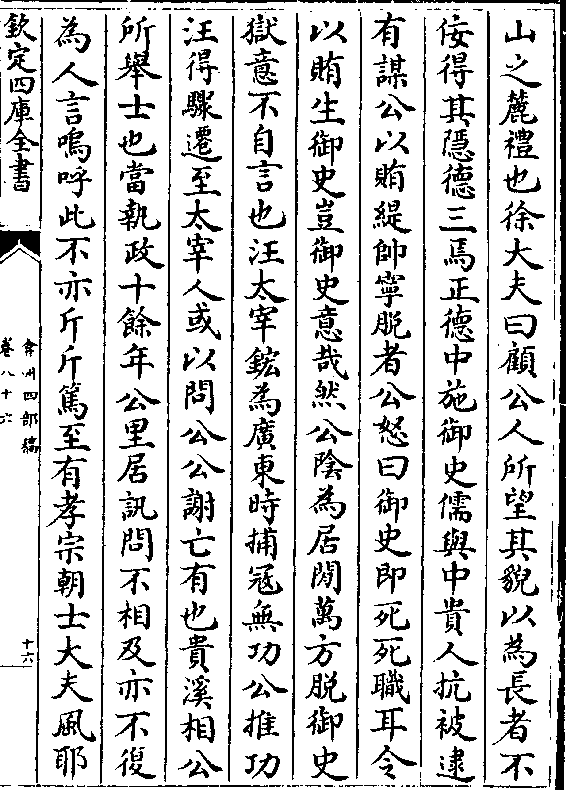 山之麓禮也徐大夫曰顧公人所望其貌以為長者不
佞得其隱德三焉正德中施御史儒與中貴人抗被逮
有謀公以賄緹帥寧脫者公怒曰御史即死死職耳令
以賄生御史豈御史意哉然公陰為居閒萬方脫御史
獄意不自言也汪太宰鋐為廣東時捕寇無功公推功
汪得驟遷至太宰人或以問公公謝亡有也貴溪相公
所舉士也當執政十餘年公里居訊問不相及亦不復
為人言嗚呼此不亦斤斤篤至有孝宗朝士大夫風耶
欽定四庫全書
弇州四部稿
卷八十六
十六